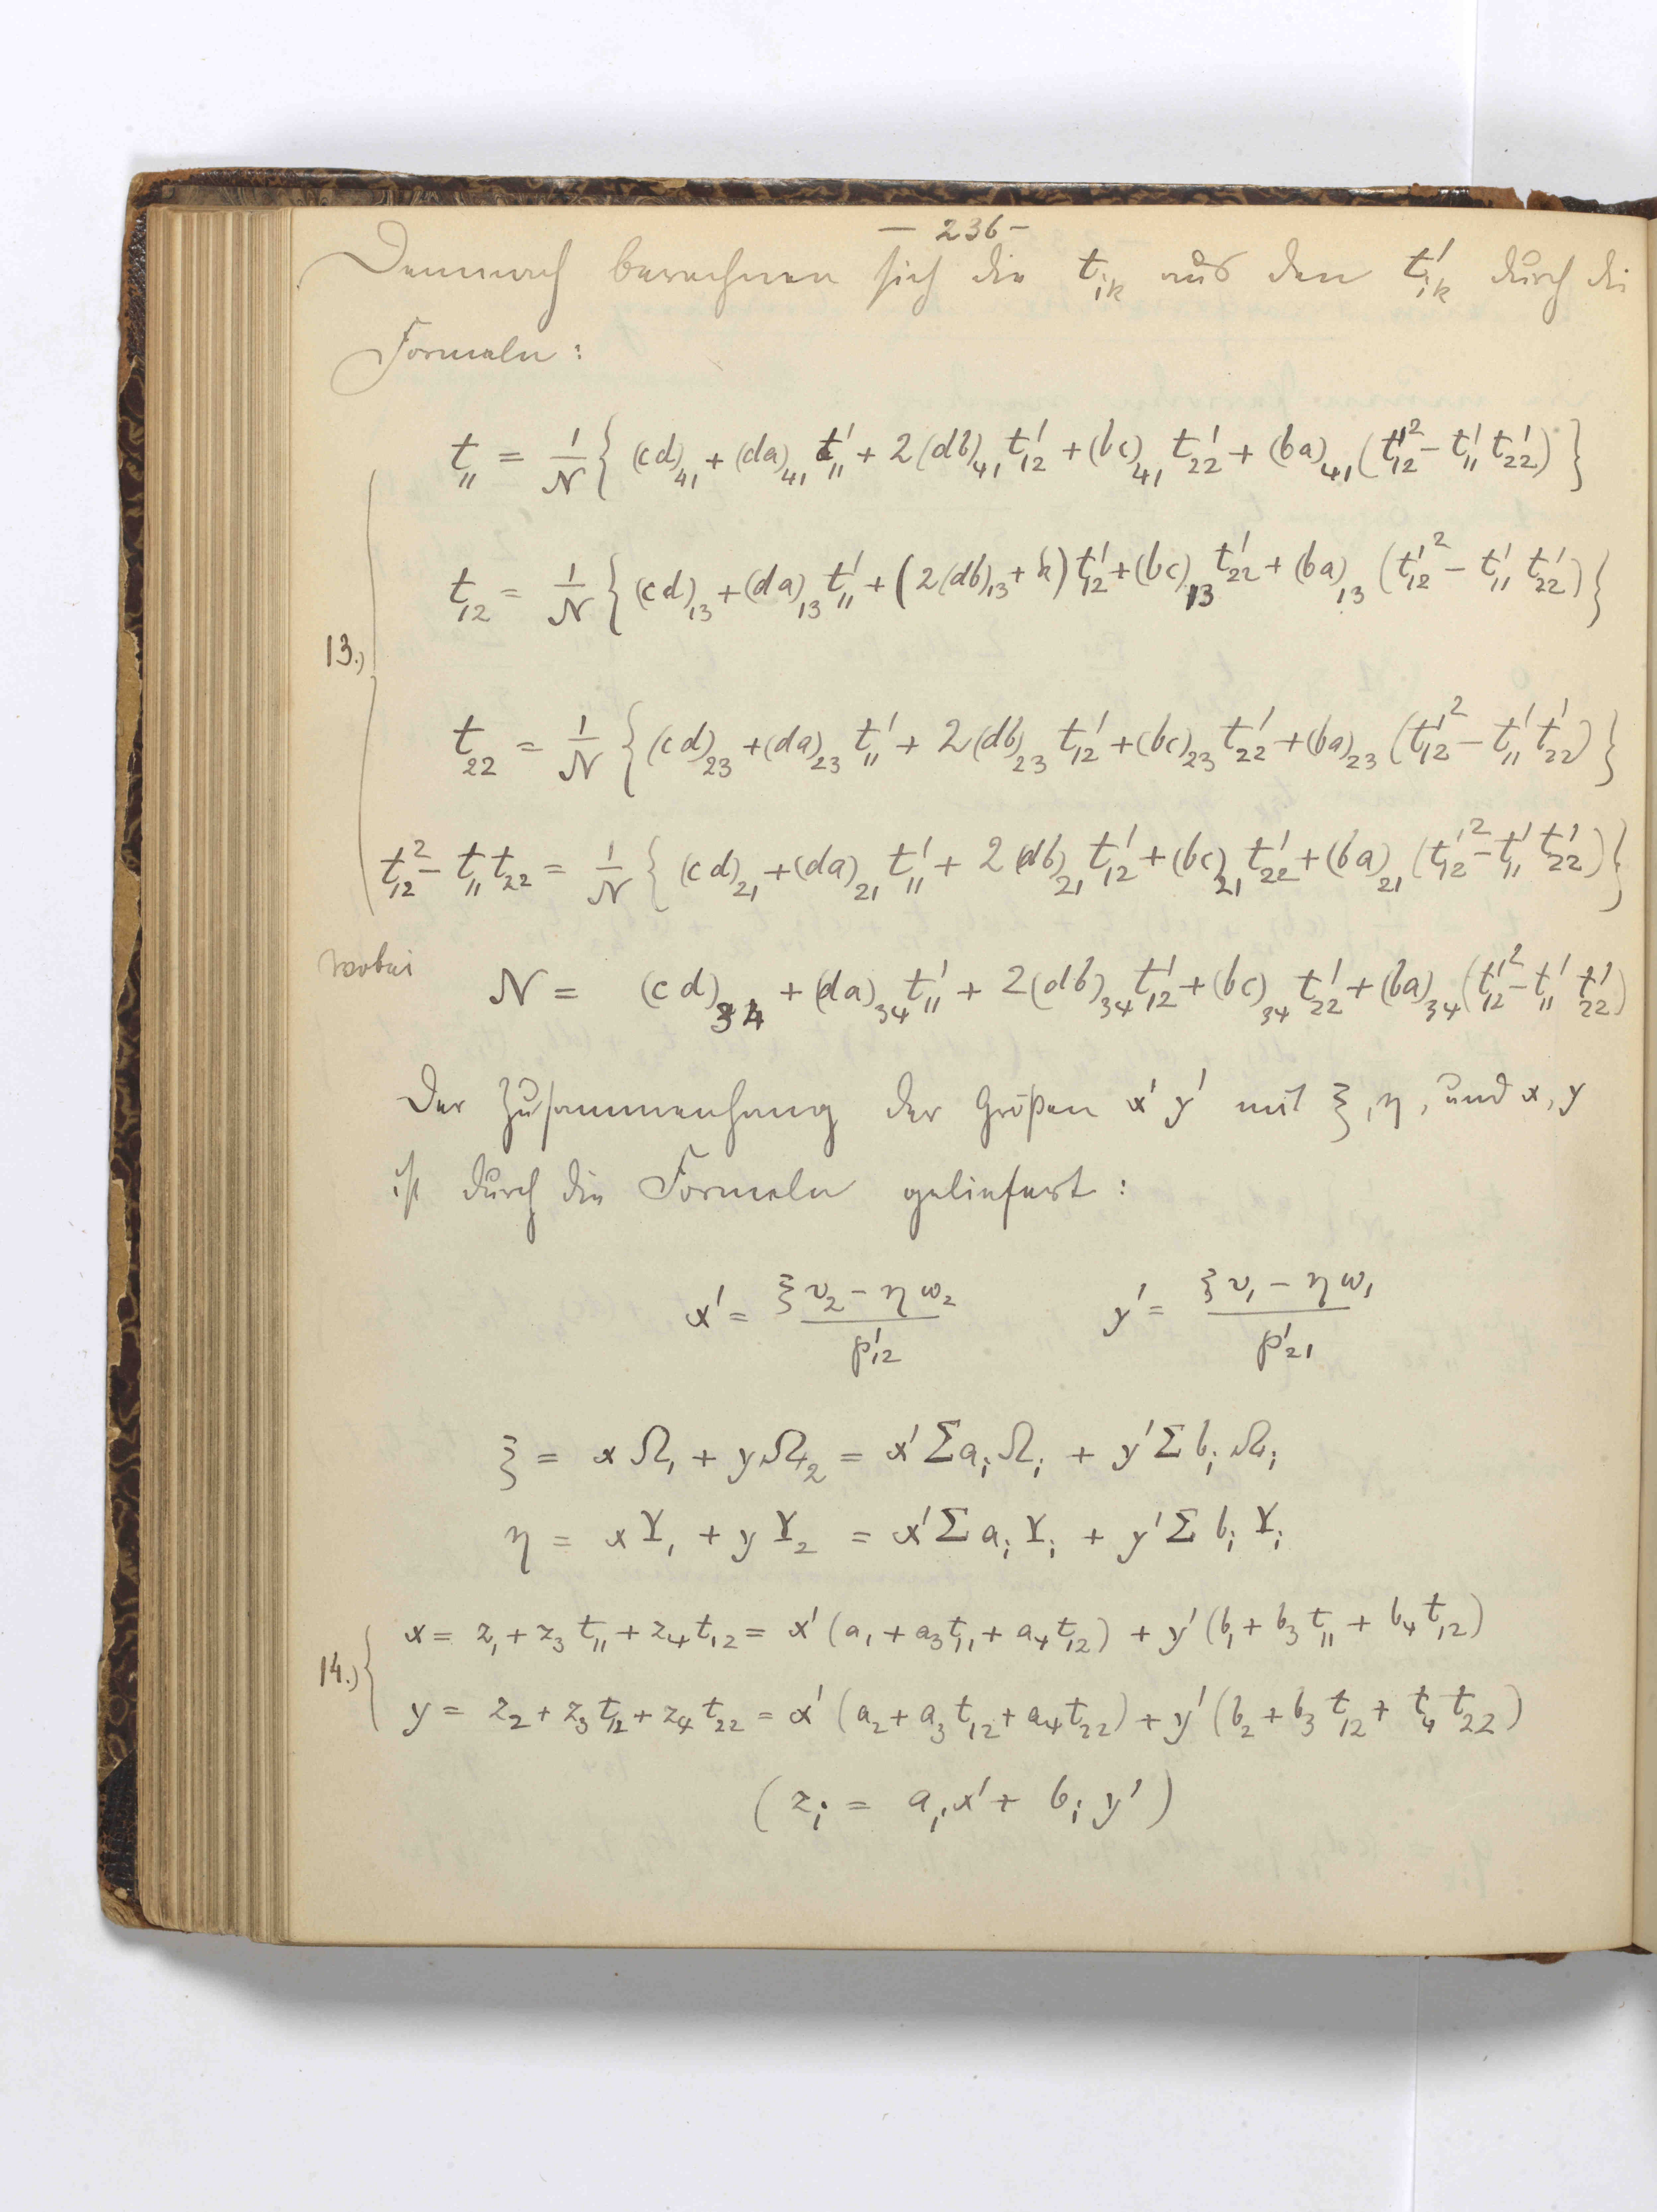 — 236 —
Demnach berechnen sich die t_{ik} aus den t'_{ik} durch die
Formeln:
t_{11} = \frac{1}{N} { (cd)_{41} + (da)_{41} t'_{11} + 2(db)_{41} t'_{12} + (bc)_{41} t'_{22} + (ba)_{41} (t'^2_{12} - t'_{11} t'_{22}) }
t_{12} = \frac{1}{N} { (cd)_{13} + (da)_{13} t'_{11} + (2(db)_{13} + k) t'_{12} + (bc)_{13} t'_{22} + (ba)_{13} (t'^2_{12} - t'_{11} t'_{22}) }
13.)
t_{22} = \frac{1}{N} { (cd)_{23} + (da)_{23} t'_{11} + 2(db)_{23} t'_{12} + (bc)_{23} t'_{22} + (ba)_{23} (t'^2_{12} - t'_{11} t'_{22}) }
t^2_{12} - t_{11} t_{22} = \frac{1}{N} { (cd)_{21} + (da)_{21} t'_{11} + 2(db)_{21} t'_{12} + (bc)_{21} t'_{22} + (ba)_{21} (t'^2_{12} - t'_{11} t'_{22}) }
wobei N = (cd)_{34} + (da)_{34} t'_{11} + 2(db)_{34} t'_{12} + (bc)_{34} t'_{22} + (ba)_{34} (t'^2_{12} - t'_{11} t'_{22})
Der Zusammenhang der Größen x' y' mit ξ, η, und x, y
ist durch die Formeln geliefert:
x' = \frac{ξ v_2 - η w_2}{p'_{12}} y' = \frac{ξ v_1 - η w_1}{p'_{21}}
ξ = x Ω_1 + y Ω_2 = x' Σ a_i Ω_i + y' Σ b_i Ω_i
η = x Υ_1 + y Υ_2 = x' Σ a_i Υ_i + y' Σ b_i Υ_i
x = z_1 + z_3 t_{11} + z_4 t_{12} = x' (a_1 + a_3 t_{11} + a_4 t_{12}) + y' (b_1 + b_3 t_{11} + b_4 t_{12})
14.)
y = z_2 + z_3 t_{12} + z_4 t_{22} = x' (a_2 + a_3 t_{12} + a_4 t_{22}) + y' (b_2 + b_3 t_{12} + t_4 t_{22})
(z_i = a_i x' + b_i y')